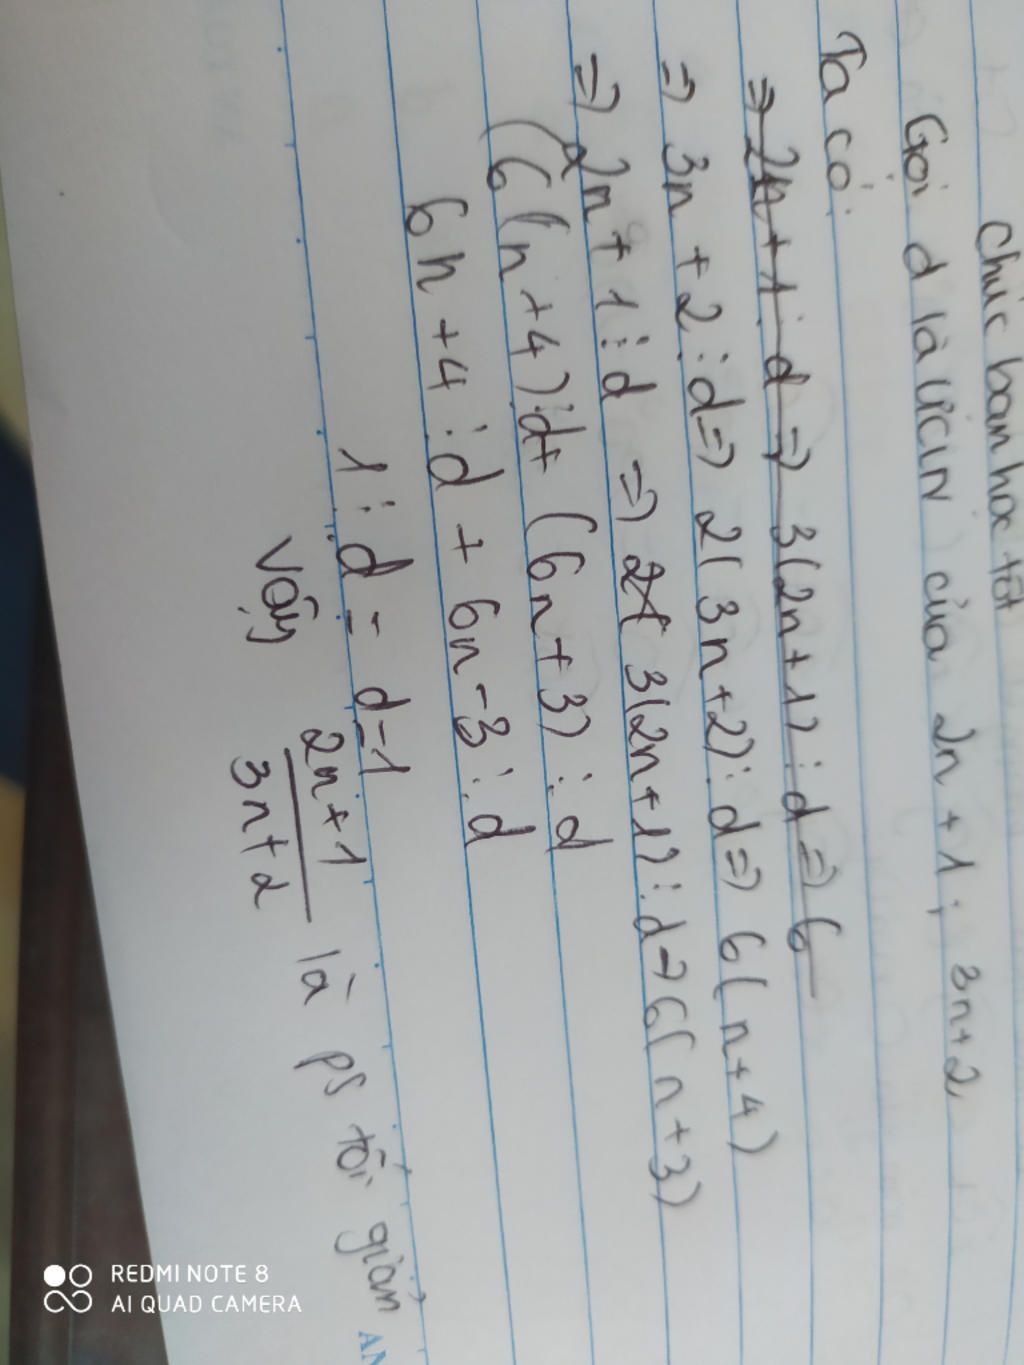 Chúc bạn học tốt
Gọi d là ƯCLN của 2n + 1 ; 3n+2
Ta có:
=> 2n + 1 ⋮ d => 3(2n+1) ⋮ d => 6
=> 3n + 2 ⋮ d => 2(3n+2) ⋮ d => 6(n+4)
=> 2n + 1 ⋮ d => 3(2n+1) ⋮ d => 6(n+3)
(6(n+4) ⋮ d + (6n+3) ⋮ d
6n +4 ⋮ d + 6n - 3 ⋮ d
1 ⋮ d = d=1
Vậy 2n+1/3n+2 là ps tối giản
REDMI NOTE 8
AI QUAD CAMERA